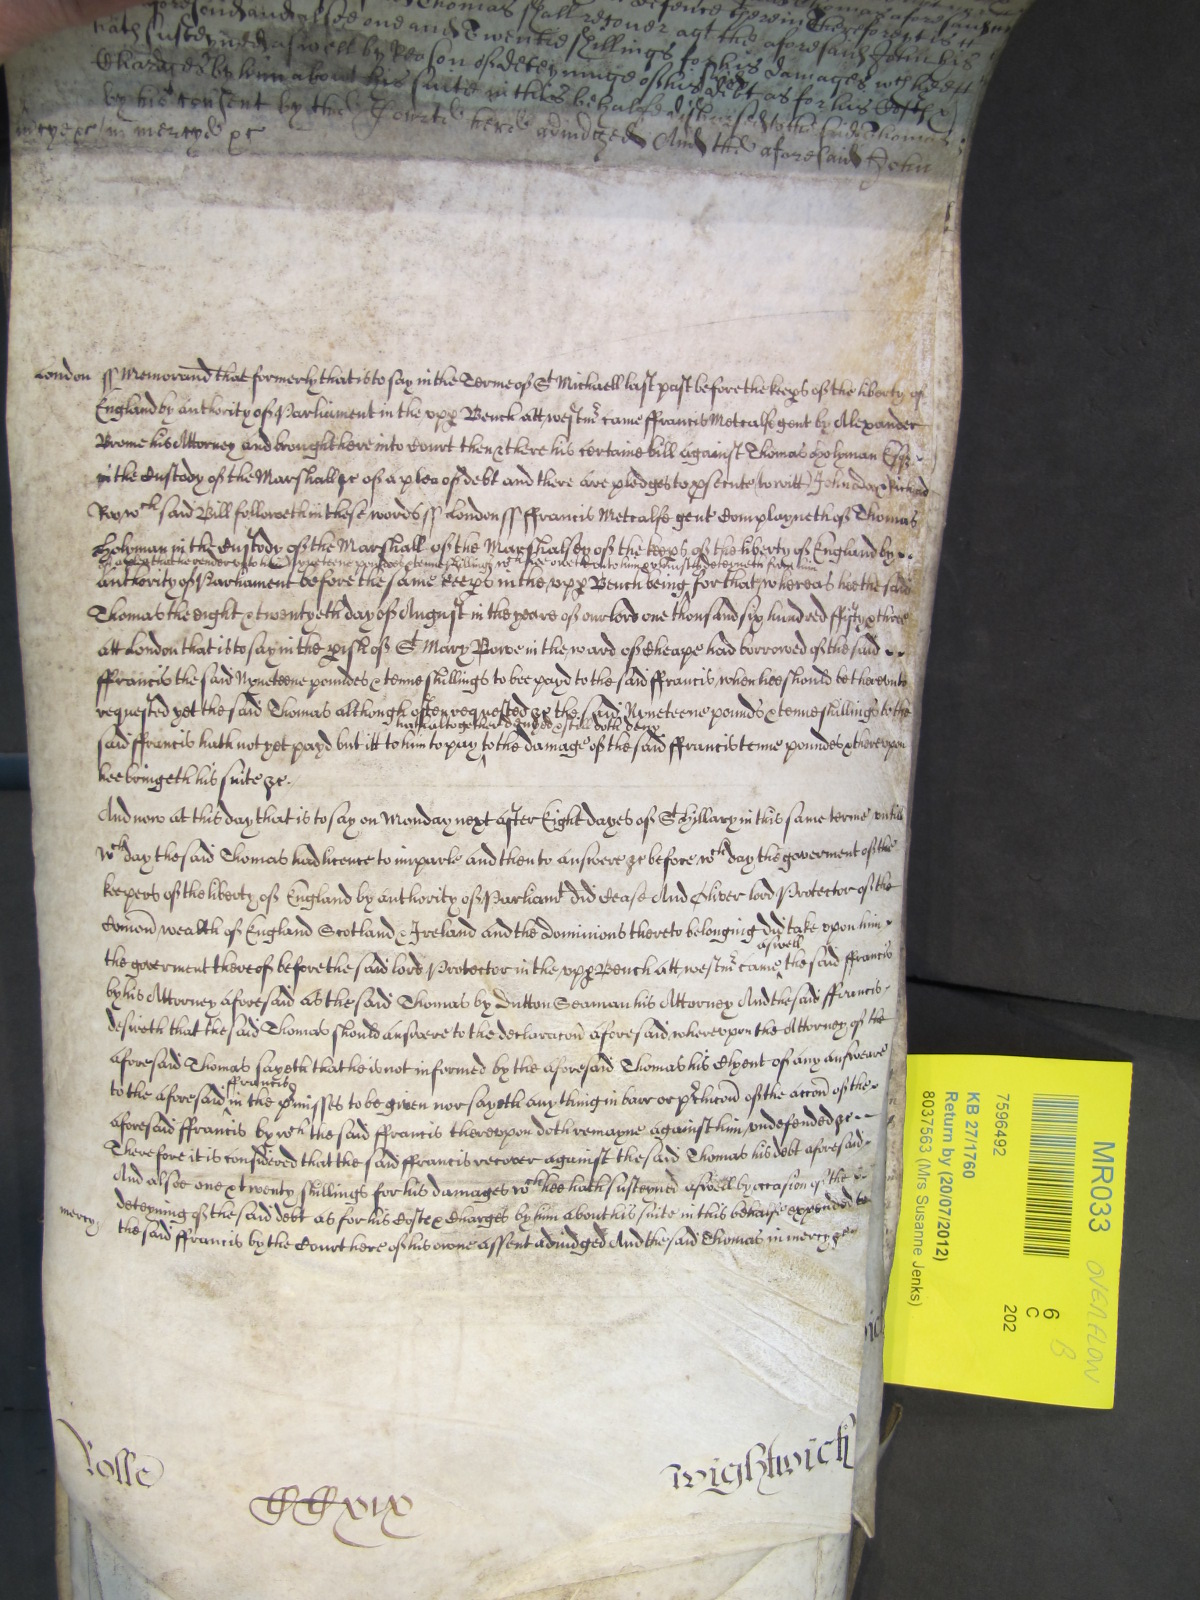 Thomas shall recover agt the aforesaid John his
also one and Twentie shillings for his damages wch hee
hath susteyned aswell by Reason of deteyninge of his debt as for his Costs &
Charges by him about his suite in this behalfe disbursed to the said Thomas
by his consent by the Courte here adiudged And the aforesaid John
in mercy &c in mercye &c
London ss Memorand that formerly that is to say in the Terme of St Michaell last past before the keeps of the liberty of
England by authority of Parliament in the upp Bench att westmr came ffrancis Metcalfe gent by Alexander
Brome his Attorney and brought here into Court then & there his certaine bill against Thomas Holyman Esqr
in the Custody of the Marshall &c of a plea of debt and there are pledges to psecute (to witt) John Doe & Richard
Roe wch said Bill followeth in these words ss London ss ffrancis Metcalfe gent Complayneth of Thomas
Holyman in the Custody of the Marshall of the Marshalsey of the keeps of the liberty of England by
of a plea that he render unto him Nyneteene poundes & tenne shillings wch hee oweth unto him & uniustly deteyneth from him
authority of Parliament before the same keeps in the upp Bench being for that whereas hee the said
Thomas the eight & twentyeth day of August in the yeare of our lord one thousand six hundred ffifty & three
att London that is to say in the pish of St Mary Bowe in the ward of Cheape had borrowed of the said
ffrancis the said Nyneteene poundes & tenne shillings to bee payd to the said ffrancis when hee should be thereunto
requested yet the said Thomas although often requested &c the said Nyneteene pounds & tenne shillings to the
hath altogether denyed & still doth deny
said ffrancis hath not yet payd but itt to him to pay to the damage of the said ffrancis tenne poundes & thereupon
hee bringeth his suite &c.
And now at this day that is to say on Monday next after Eight dayes of St Hyllary in this same terme untill
wch day the said Thomas had licence to imparle and then to answere &c before wch day the goverment of the
keepers of the liberty of England by authority of Parliamt did cease And Oliver lord Protector of the
Comon wealth of England Scotland & Ireland and the Dominions thereto belonging did take upon him
aswell
the goverment thereof before the said lord Protector in the upp Bench att westmr came the said ffrancis
by his Attorney aforesaid as the said Thomas by Dutton Seaman his Attorney And the said ffrancis
desireth that the said Thomas should answere to the declaracon aforesaid, whereupon the Attorney of the
aforesaid Thomas sayeth that he is not informed by the aforesaid Thomas his Clyent of any answeare
ffrancis
to the aforesaid in the pmisses to be given nor sayeth any thing in barr or pclucon of the accon of the
aforesaid ffrancis by wch the said ffrancis thereupon doth remayne against him undefended &c
Therefore it is considered that the said ffrancis recover against the said Thomas his debt aforesaid
And alsoe one & twenty shillings for his damages wch hee hath susteyned aswell by occasion of the
deteyning of the said debt as for his Costs & Charges by him about his suite in this behalfe expended to
mercy
the said ffrancis by the Court here of his owne assent adiudged And the said Thomas in mercy &c
Rolle
Wightwick
CCxix
MR033
OVERFLOW
6
B
C
202
7596492
KB 27/1760
Return by (20/07/2012)
8037563 (Mrs Susanne Jenks)